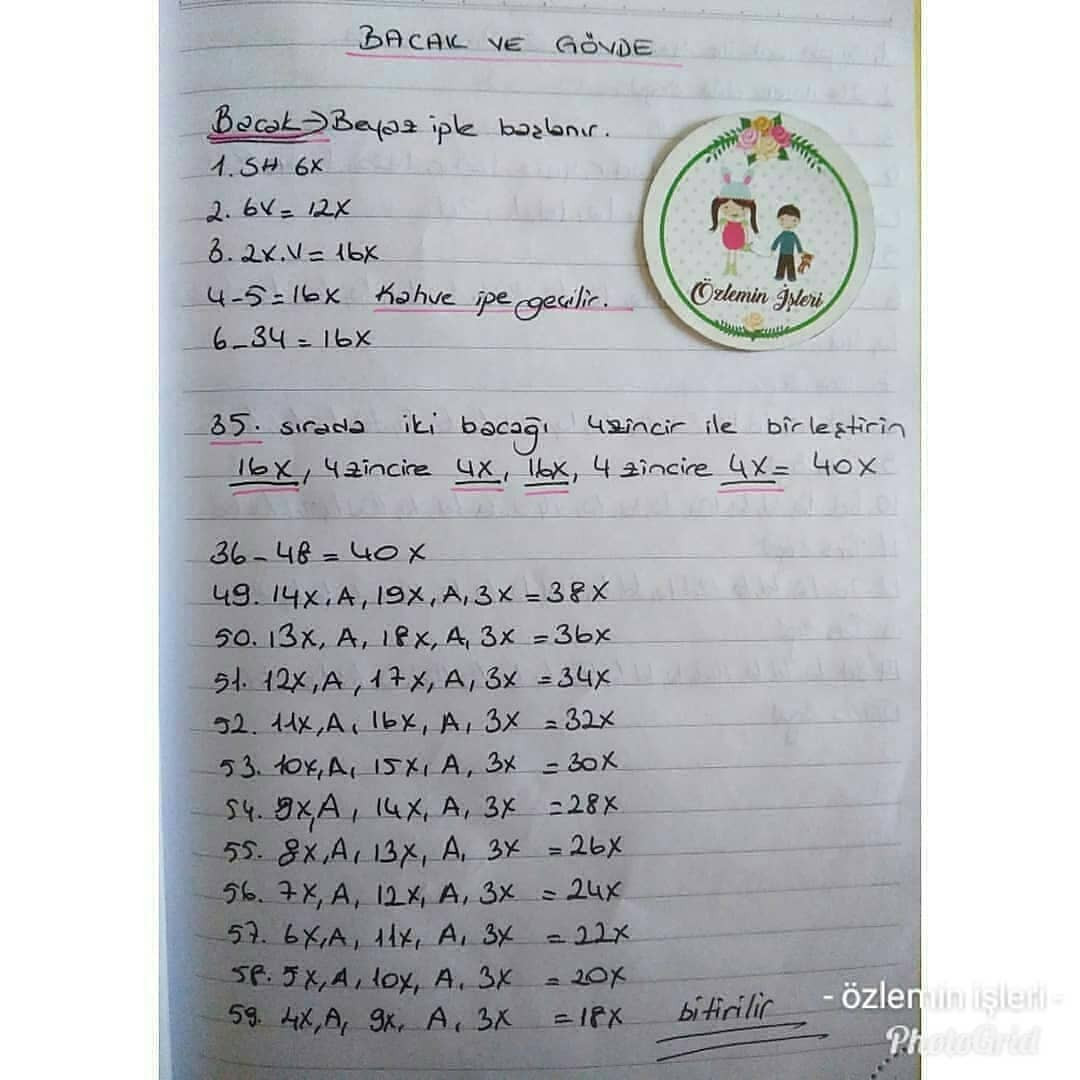 BACAK VE GÖVDE
Bacak→Beyaz iple başlanır.
1. SH 6X
2. 6V= 12X
3. 2X.V= 16X
4-5=16X Kahve ipe geçilir.
6-34=16X
Özlemin İşleri
35. sırada iki bacağı 4zincir ile birleştirin
16X, 4zincire 4X, 16X, 4 zincire 4X= 40X
36-48=40X
49. 14X, A, 19X, A, 3X =38X
50. 13X, A, 18X, A, 3X =36X
51. 12X, A, 17X, A, 3X =34X
52. 11X, A, 16X, A, 3X =32X
53. 10X, A, 15X, A, 3X =30X
54. 9X, A, 14X, A, 3X =28X
55. 8X, A, 13X, A, 3X =26X
56. 7X, A, 12X, A, 3X =24X
57. 6X, A, 11X, A, 3X =22X
58. 5X, A, 10X, A, 3X =20X
59. 4X, A, 9X, A, 3X =18X bitirilir
- özlemin işleri -
PhotoGrid